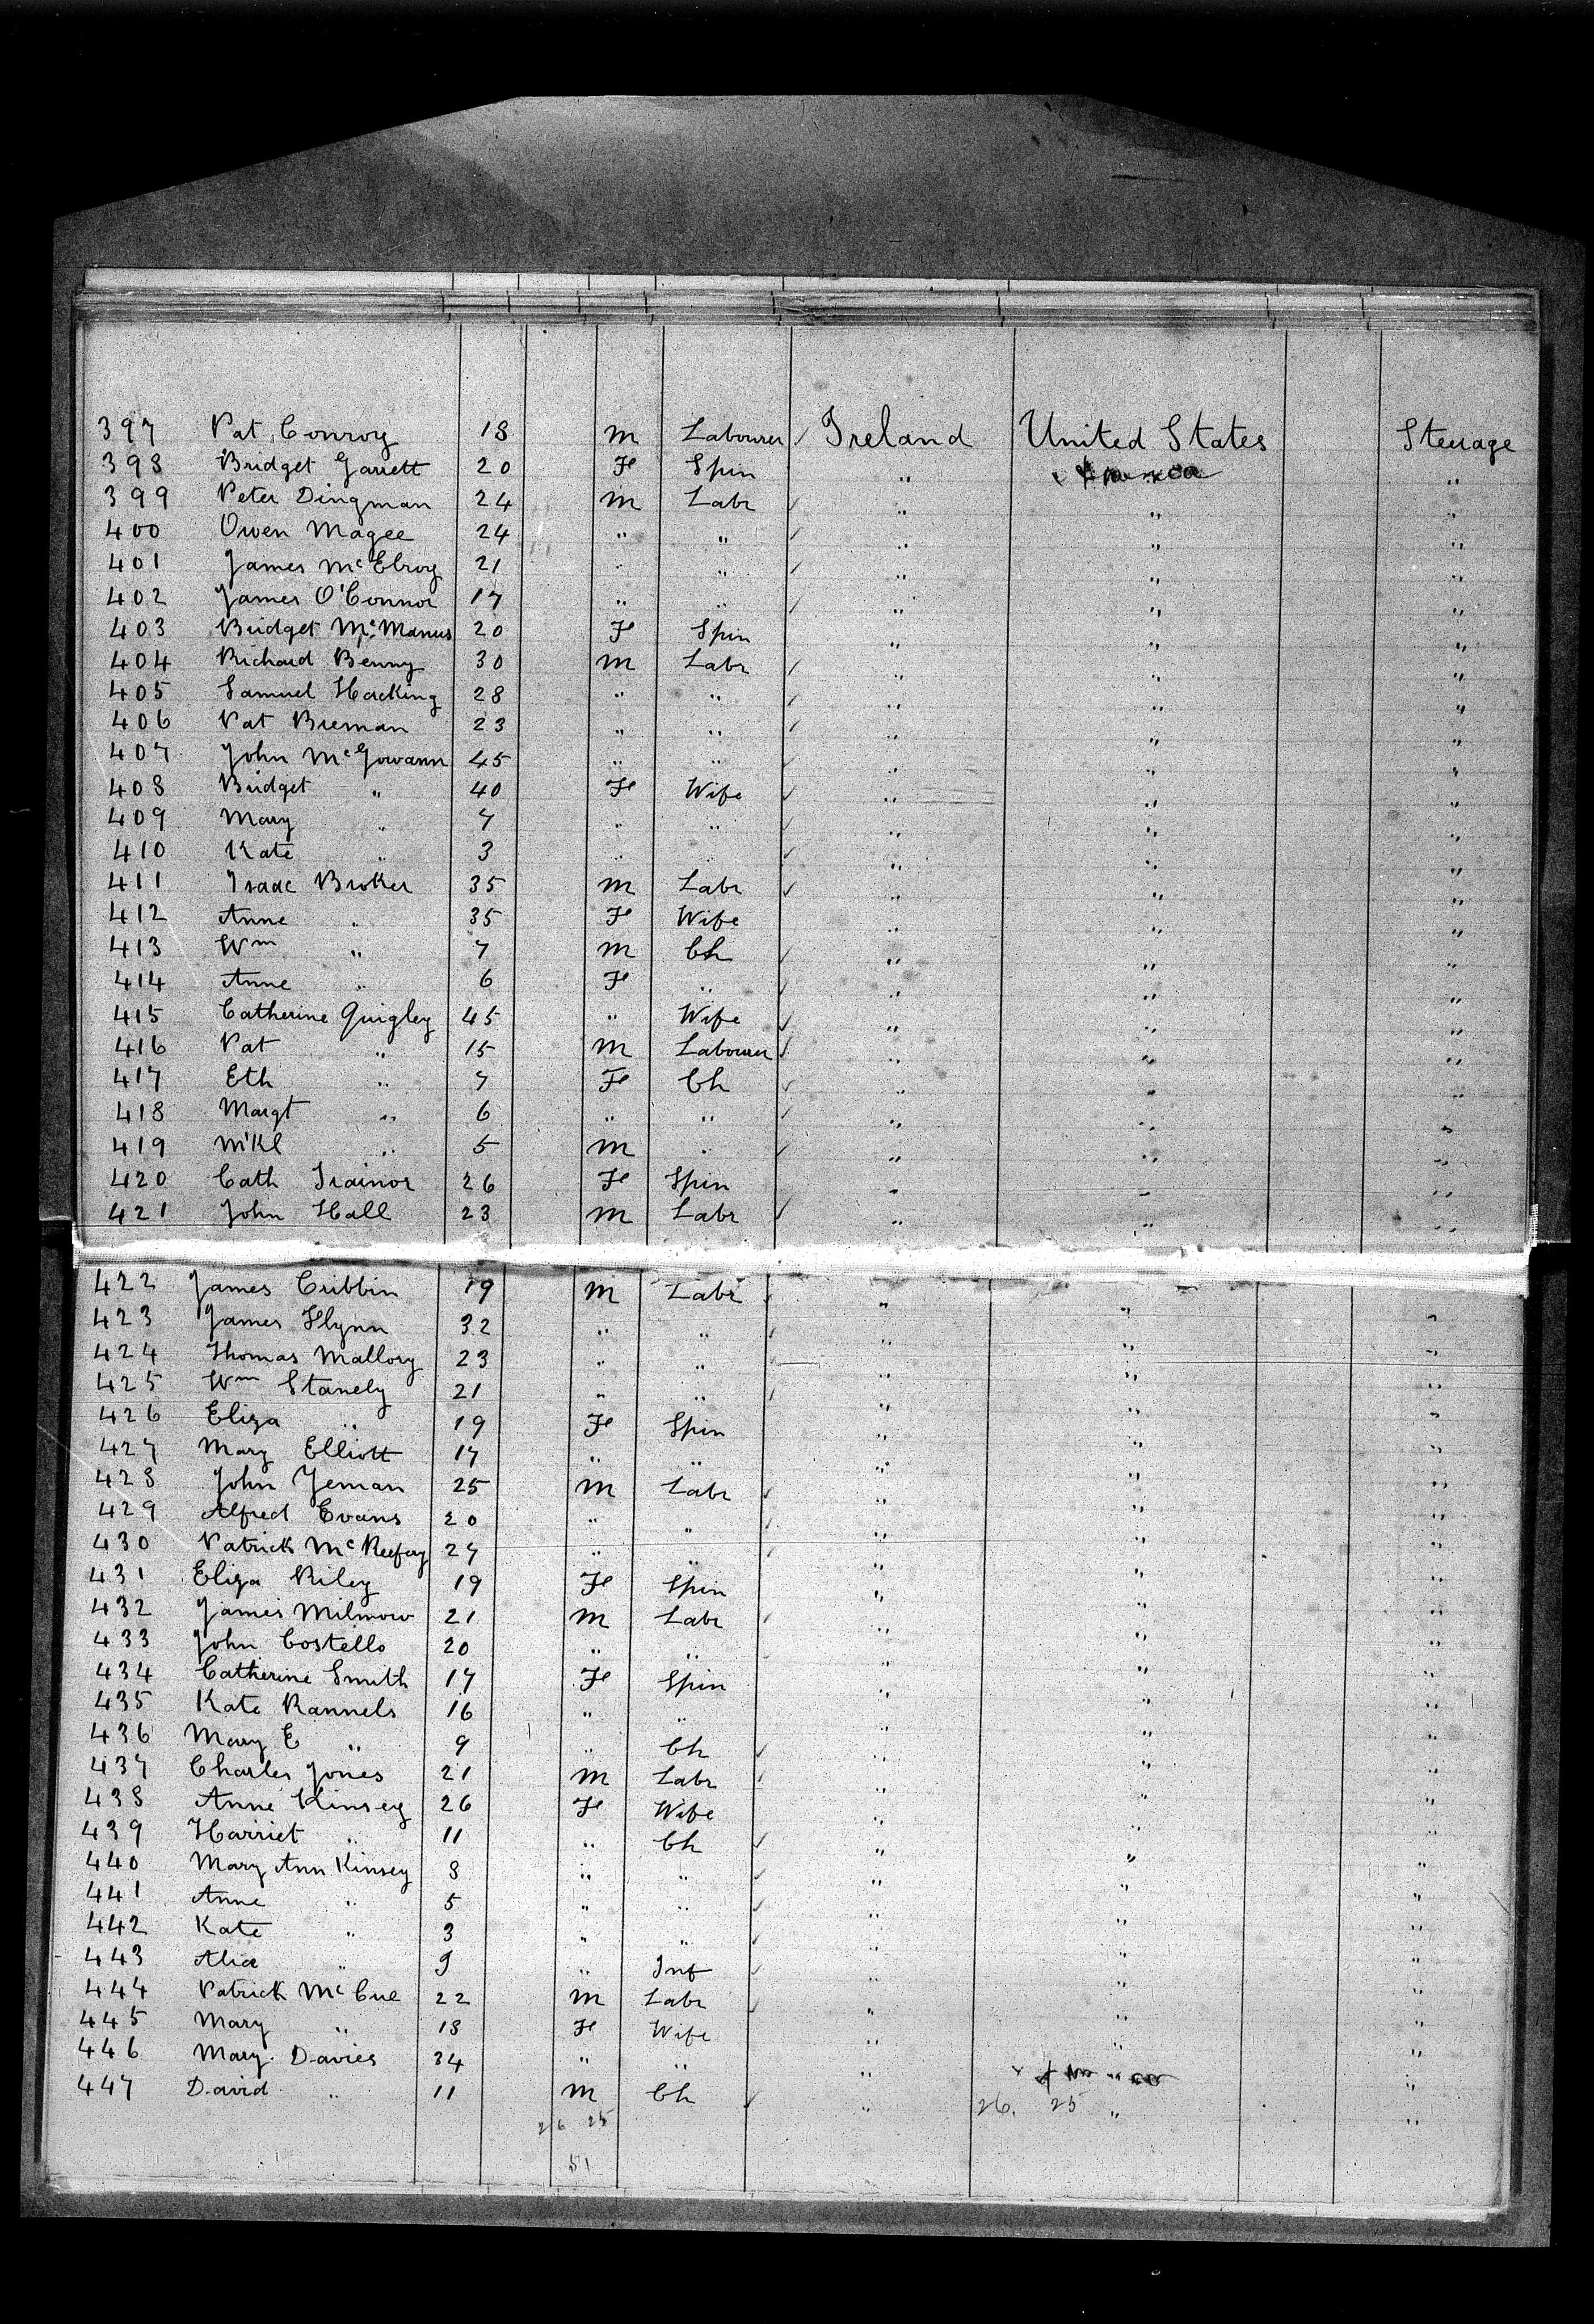 397 Pat Conroy 18 M Labourer Ireland United States Steerage
398 Bridget Garrett 20 F Spin " "
399 Peter Dingman 24 M Labr " " "
400 Owen Magee 24 " " " " "
401 James McElroy 21 " " " " "
402 James O'Connor 17 " " " " "
403 Bridget McManus 20 F Spin " " "
404 Richard Benny 30 M Labr " " "
405 Samuel Hacking 28 " " " " "
406 Pat Brennan 23 " " " " "
407 John McGowann 45 " " " " "
408 Bridget " 40 F Wife " " "
409 Mary " 7 " " " " "
410 Kate " 3 " " " " "
411 Isaac Broker 35 M Labr " " "
412 Anne " 35 F Wife " " "
413 Wm " 7 M Ch " " "
414 Anne " 6 F " " " "
415 Catherine Quigley 45 " Wife " " "
416 Pat " 15 M Labourer " " "
417 Eth " 7 F Ch " " "
418 Margt " 6 " " " " "
419 M'Kl " 5 M " " " "
420 Cath Trainor 26 F Spin " " "
421 John Hall 23 M Labr " " "
422 James Cribbin 19 M Labr " " "
423 James Flynn 32 " " " " "
424 Thomas Mallory 23 " " " " "
425 Wm Stanely 21 " " " " "
426 Eliza " 19 F Spin " " "
427 Mary Elliott 17 " " " " "
428 John Yeman 25 M Labr " " "
429 Alfred Evans 20 " " " " "
430 Patrick Mc 27 " " " " "
431 Eliza Riley 19 F Spin " " "
432 James Milmow 21 M Labr " " "
433 John Costello 20 " " " " "
434 Catherine Smith 17 F Spin " " "
435 Kate Rannels 16 " " " " "
436 Mary E " 9 " Ch " " "
437 Charles Jones 21 M Labr " " "
438 Anne Kinsey 26 F Wife " " "
439 Harriet " 11 " Ch " " "
440 Mary Ann Kinsey 8 " " " " "
441 Anne " 5 " " " " "
442 Kate " 3 " " " " "
443 Alice " " Inf " " "
444 Patrick McCue 22 M Labr " " "
445 Mary " 18 F Wife " " "
446 Mary Davies 34 " " " "
447 David " 11 M Ch " " "
26 25 26. 25
51